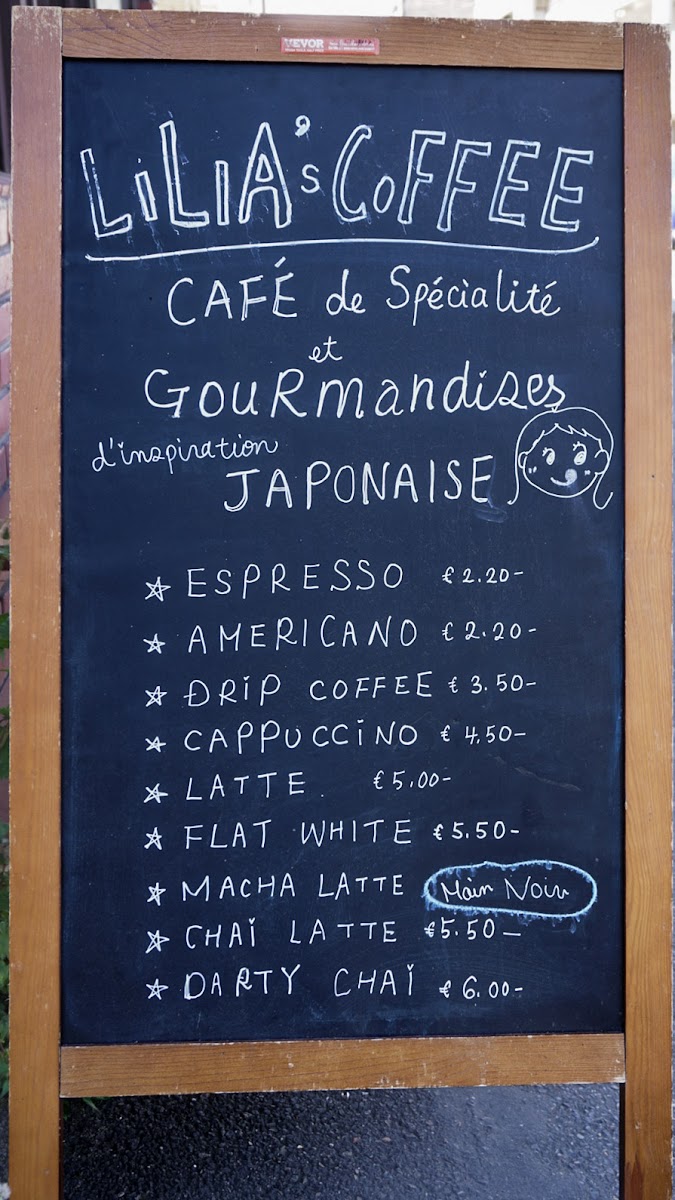 VEVOR
LiLiA's CoFFEE
CAFÉ de Spécialité
et
GouRmandises
d'inspiration
JAPONAISE
☆ ESPRESSO € 2.20-
☆ AMERICANO € 2.20-
☆ DRiP COFFEE € 3.50-
☆ CAPPUCCiNO € 4.50-
☆ LATTE. €5.00-
☆ FLAT WHITE €5.50-
☆ MACHA LATTE Main Noir
☆ CHAÏ LATTE €5.50-
☆ DARTY CHAÏ € 6.00-